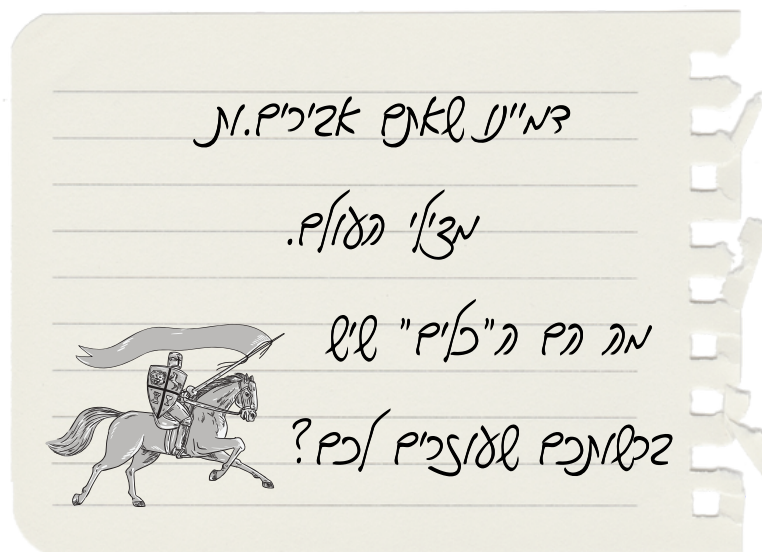 דמיינו שאתם אבירים.ות
מצילי העולם.
מה הם ה"כלים" שיש
ברשותכם שעוזרים לכם?